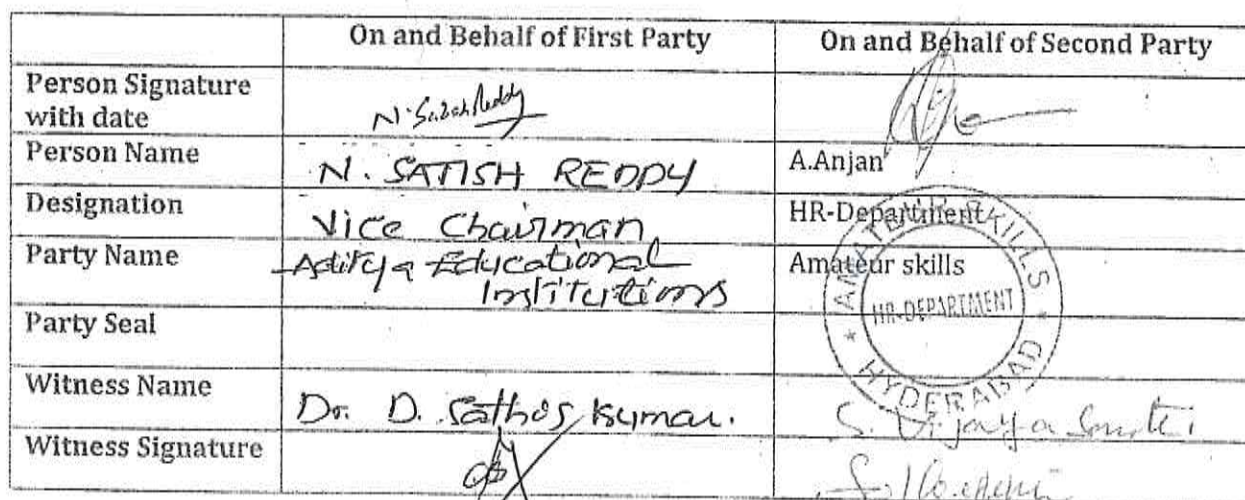 On and Behalf of First Party On and Behalf of Second Party
Person Signature
with date N. Satish Reddy
Person Name N. SATISH REDDY A.Anjan
Designation Vice Chairman HR-Department
Party Name Aditya Educational Amateur skills
Institutions
AMATEUR SKILLS
HR-DEPARTMENT
HYDERABAD
Party Seal
Witness Name Dr. D. Sathos Kumar. S. Vijaya
Witness Signature